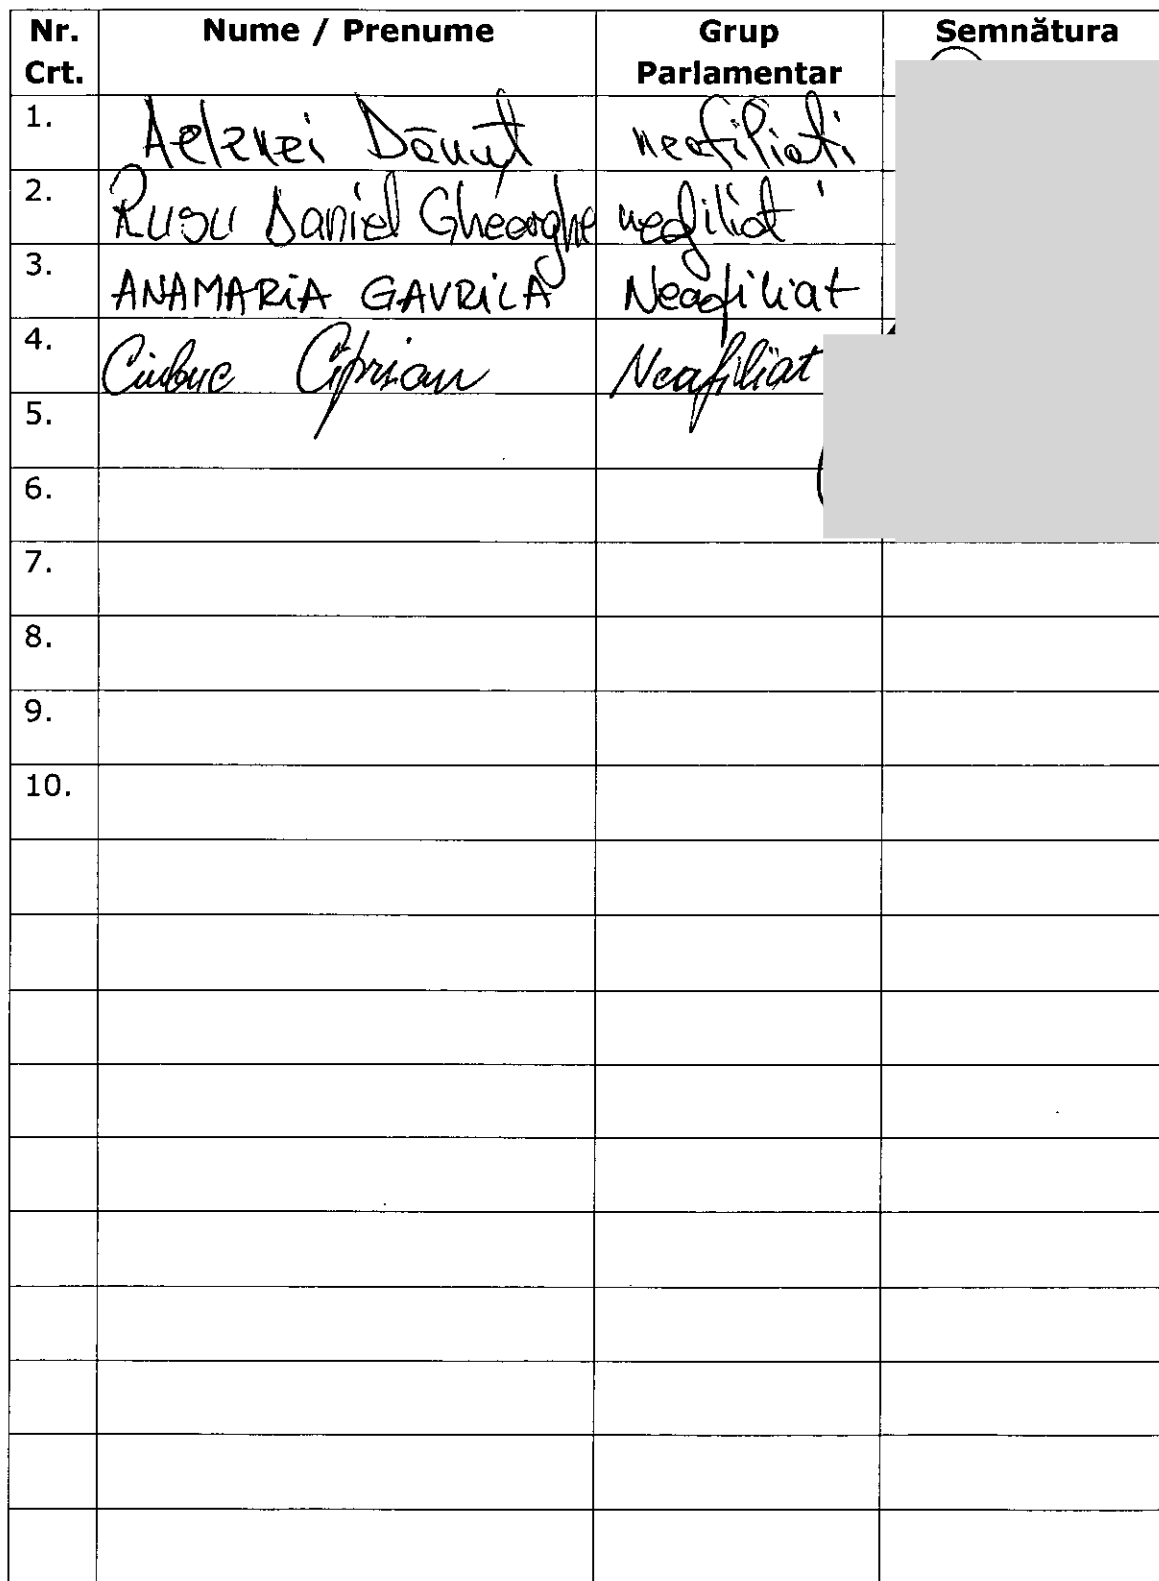 Nr. Crt. Nume / Prenume Grup Parlamentar Semnătura
1. Aelenei Dănuț neafiliati
2. Rusu Daniel Gheorghe neafiliat
3. ANAMARIA GAVRILĂ Neafiliat
4. Ciubuc Ciprian Neafiliat
5.
6.
7.
8.
9.
10.